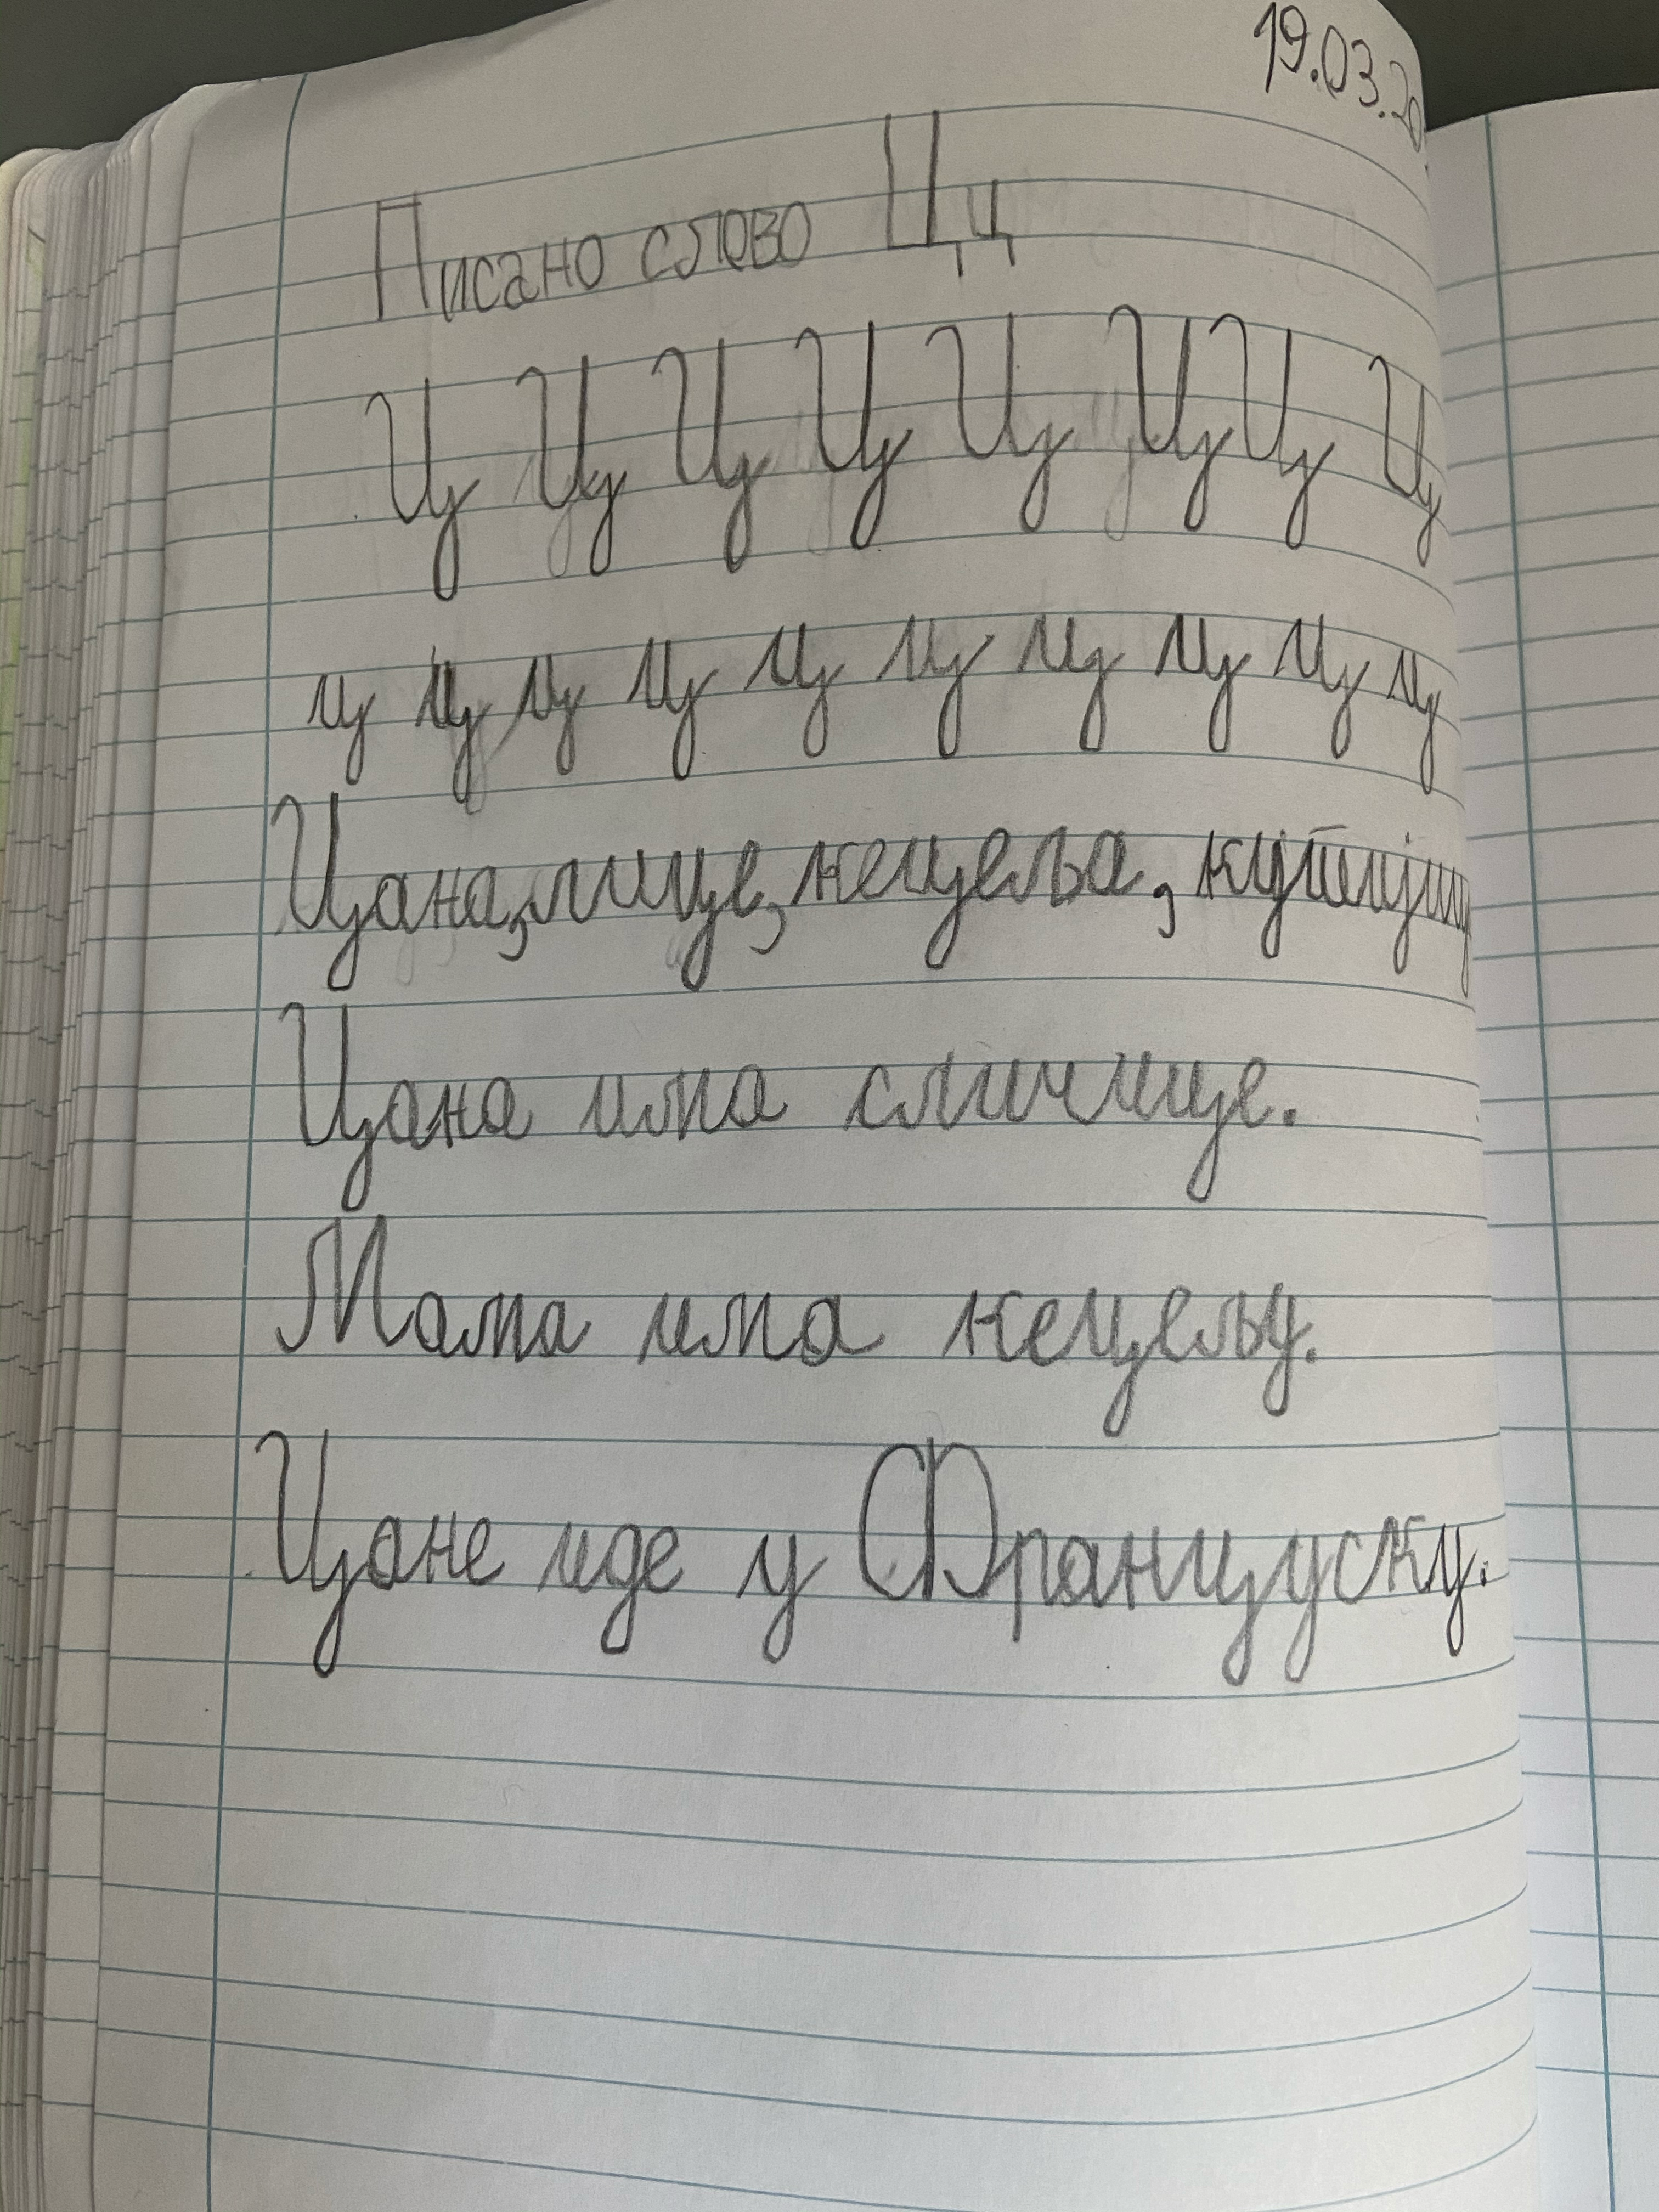 19.03.20
Писано слово Цц
Ц Ц Ц Ц Ц Ц Ц Ц
ц ц ц ц ц ц ц ц ц ц
Цана, лице, кецеља,
Цана има сличице.
Мама има кецељу.
Цане иде у Француску.